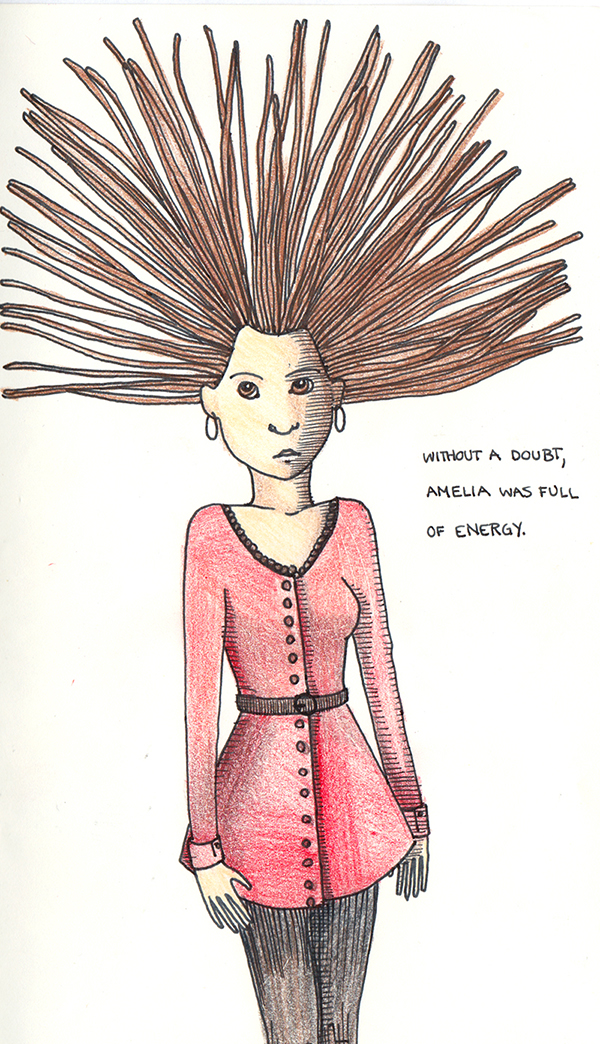 WITHOUT A DOUBT,
AMELIA WAS FULL
OF ENERGY.